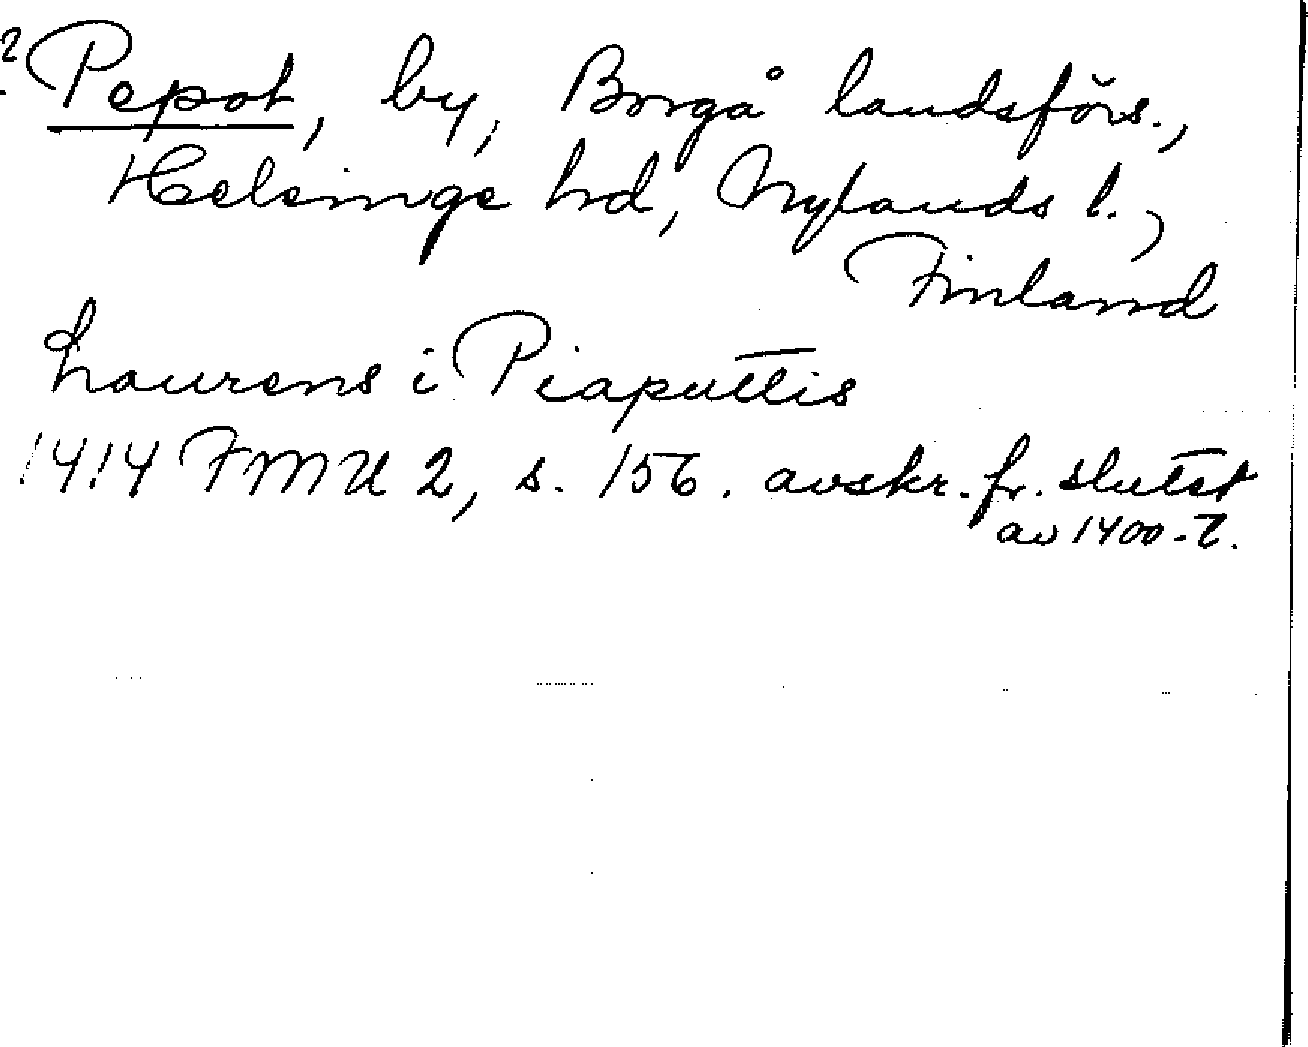 2 Pepot, by, Borgå landsförs.,
Helsinge hd, Nylands l.,
Finland
Laurens i Piaputtis
1414 FMU 2, s. 156. avskr. fr. slutet
av 1400-t.